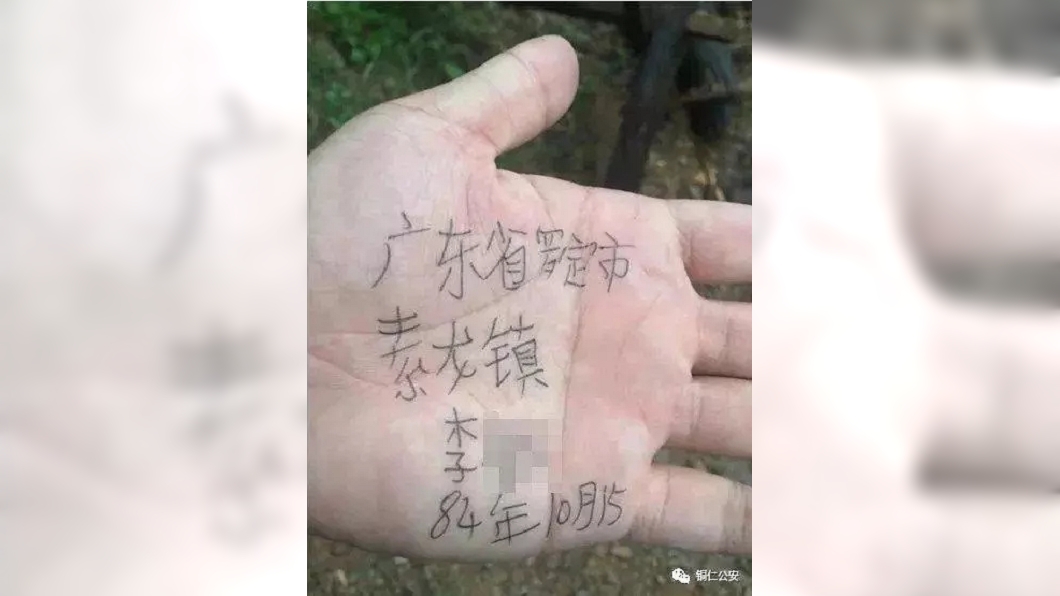 广东省罗定市
素龙镇
李
84年10月15
铜仁公安